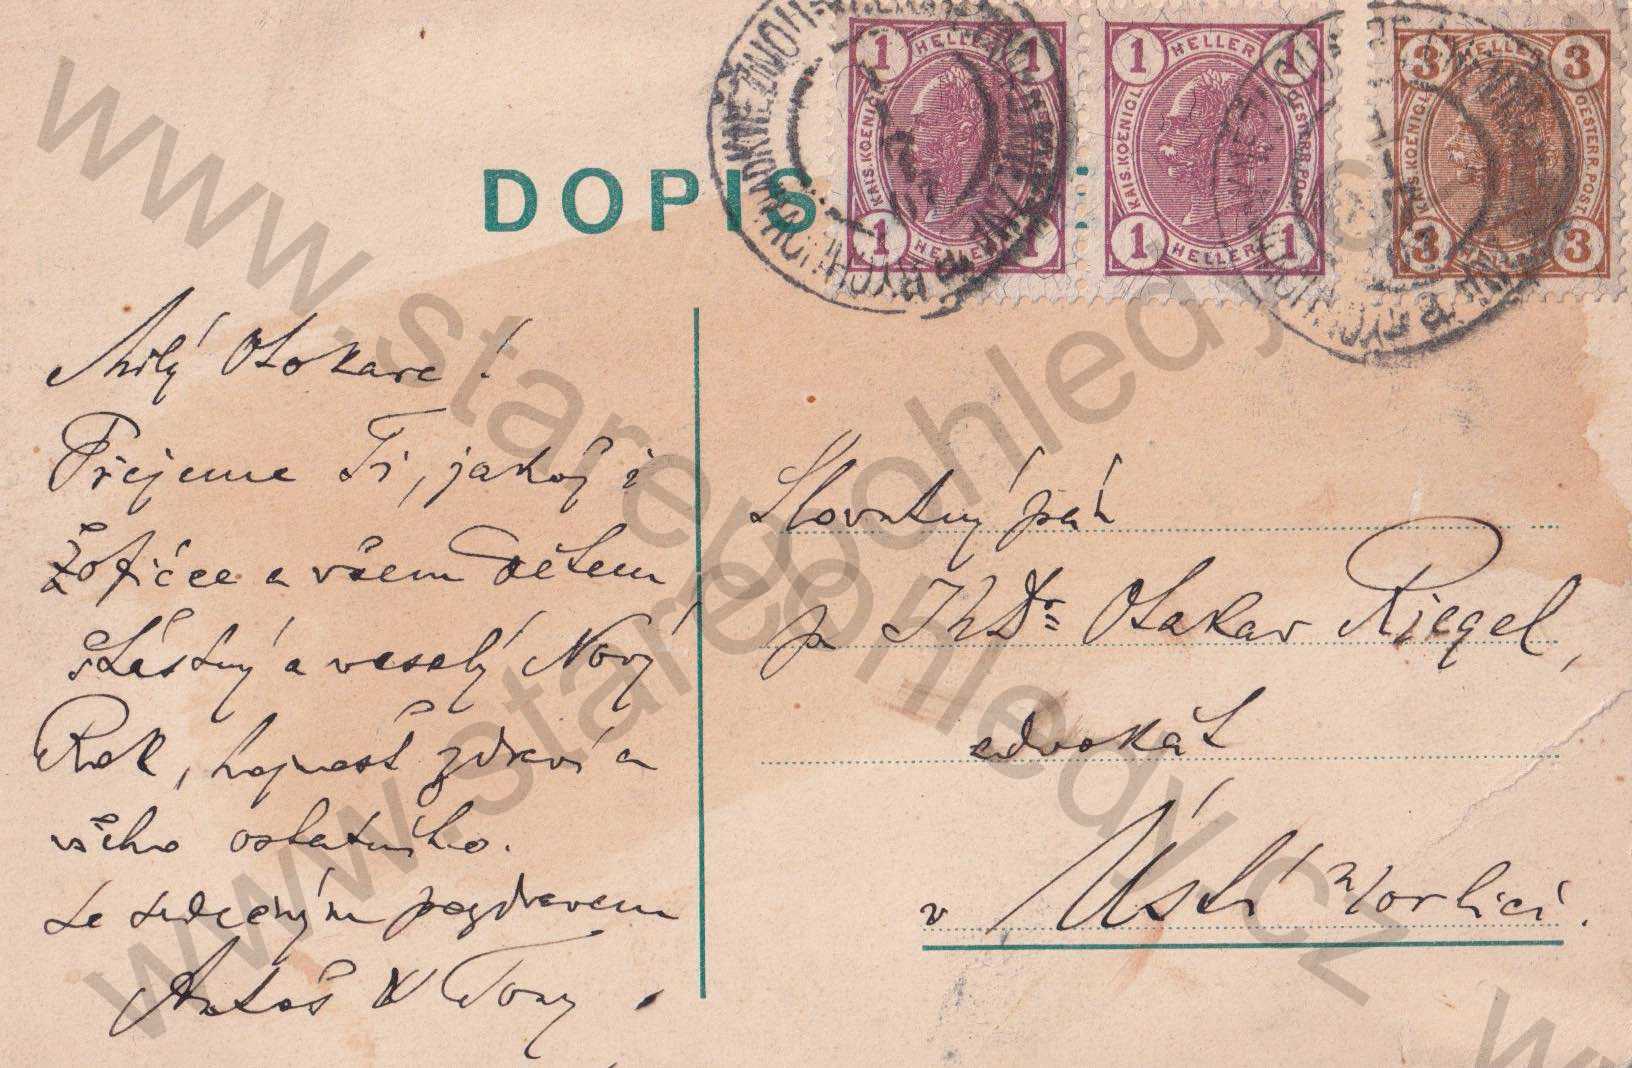 DOPIS
1 HELLER 1
1 HELLER 1
3 HELLER 3
KAIS. KOENIGL.
OESTERR. POST
KAIS. KOENIGL.
OESTERR. POST
KAIS. KOENIGL.
OESTERR. POST
1 HELLER 1
1 HELLER 1
3 HELLER 3
Milý Otokare!
Přejeme Ti, jakož i
Žofičce a všem dětem
šťastný a veselý Nový
Rok, hojnost zdraví a
všeho ostatního.
Se srdečným pozdravem
Antoš
Slovutný pán
p. JUDr. Otakar Riegel,
advokát
v Ústí n/Orlicí.
www.starepohledy.cz
www.starepohledy.cz